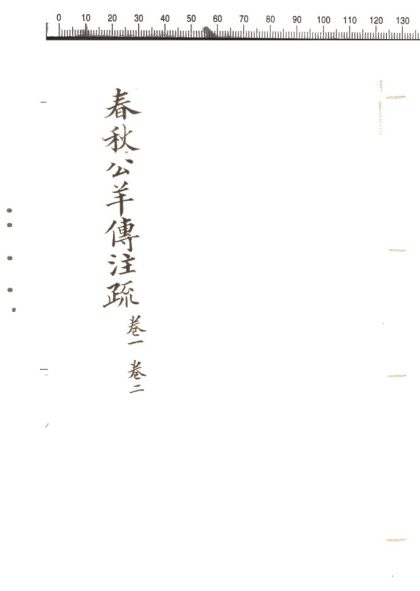 0 10 20 30 40 50 60 70 80 90 100 110 120 130
春秋公羊傳注疏
卷一 卷二